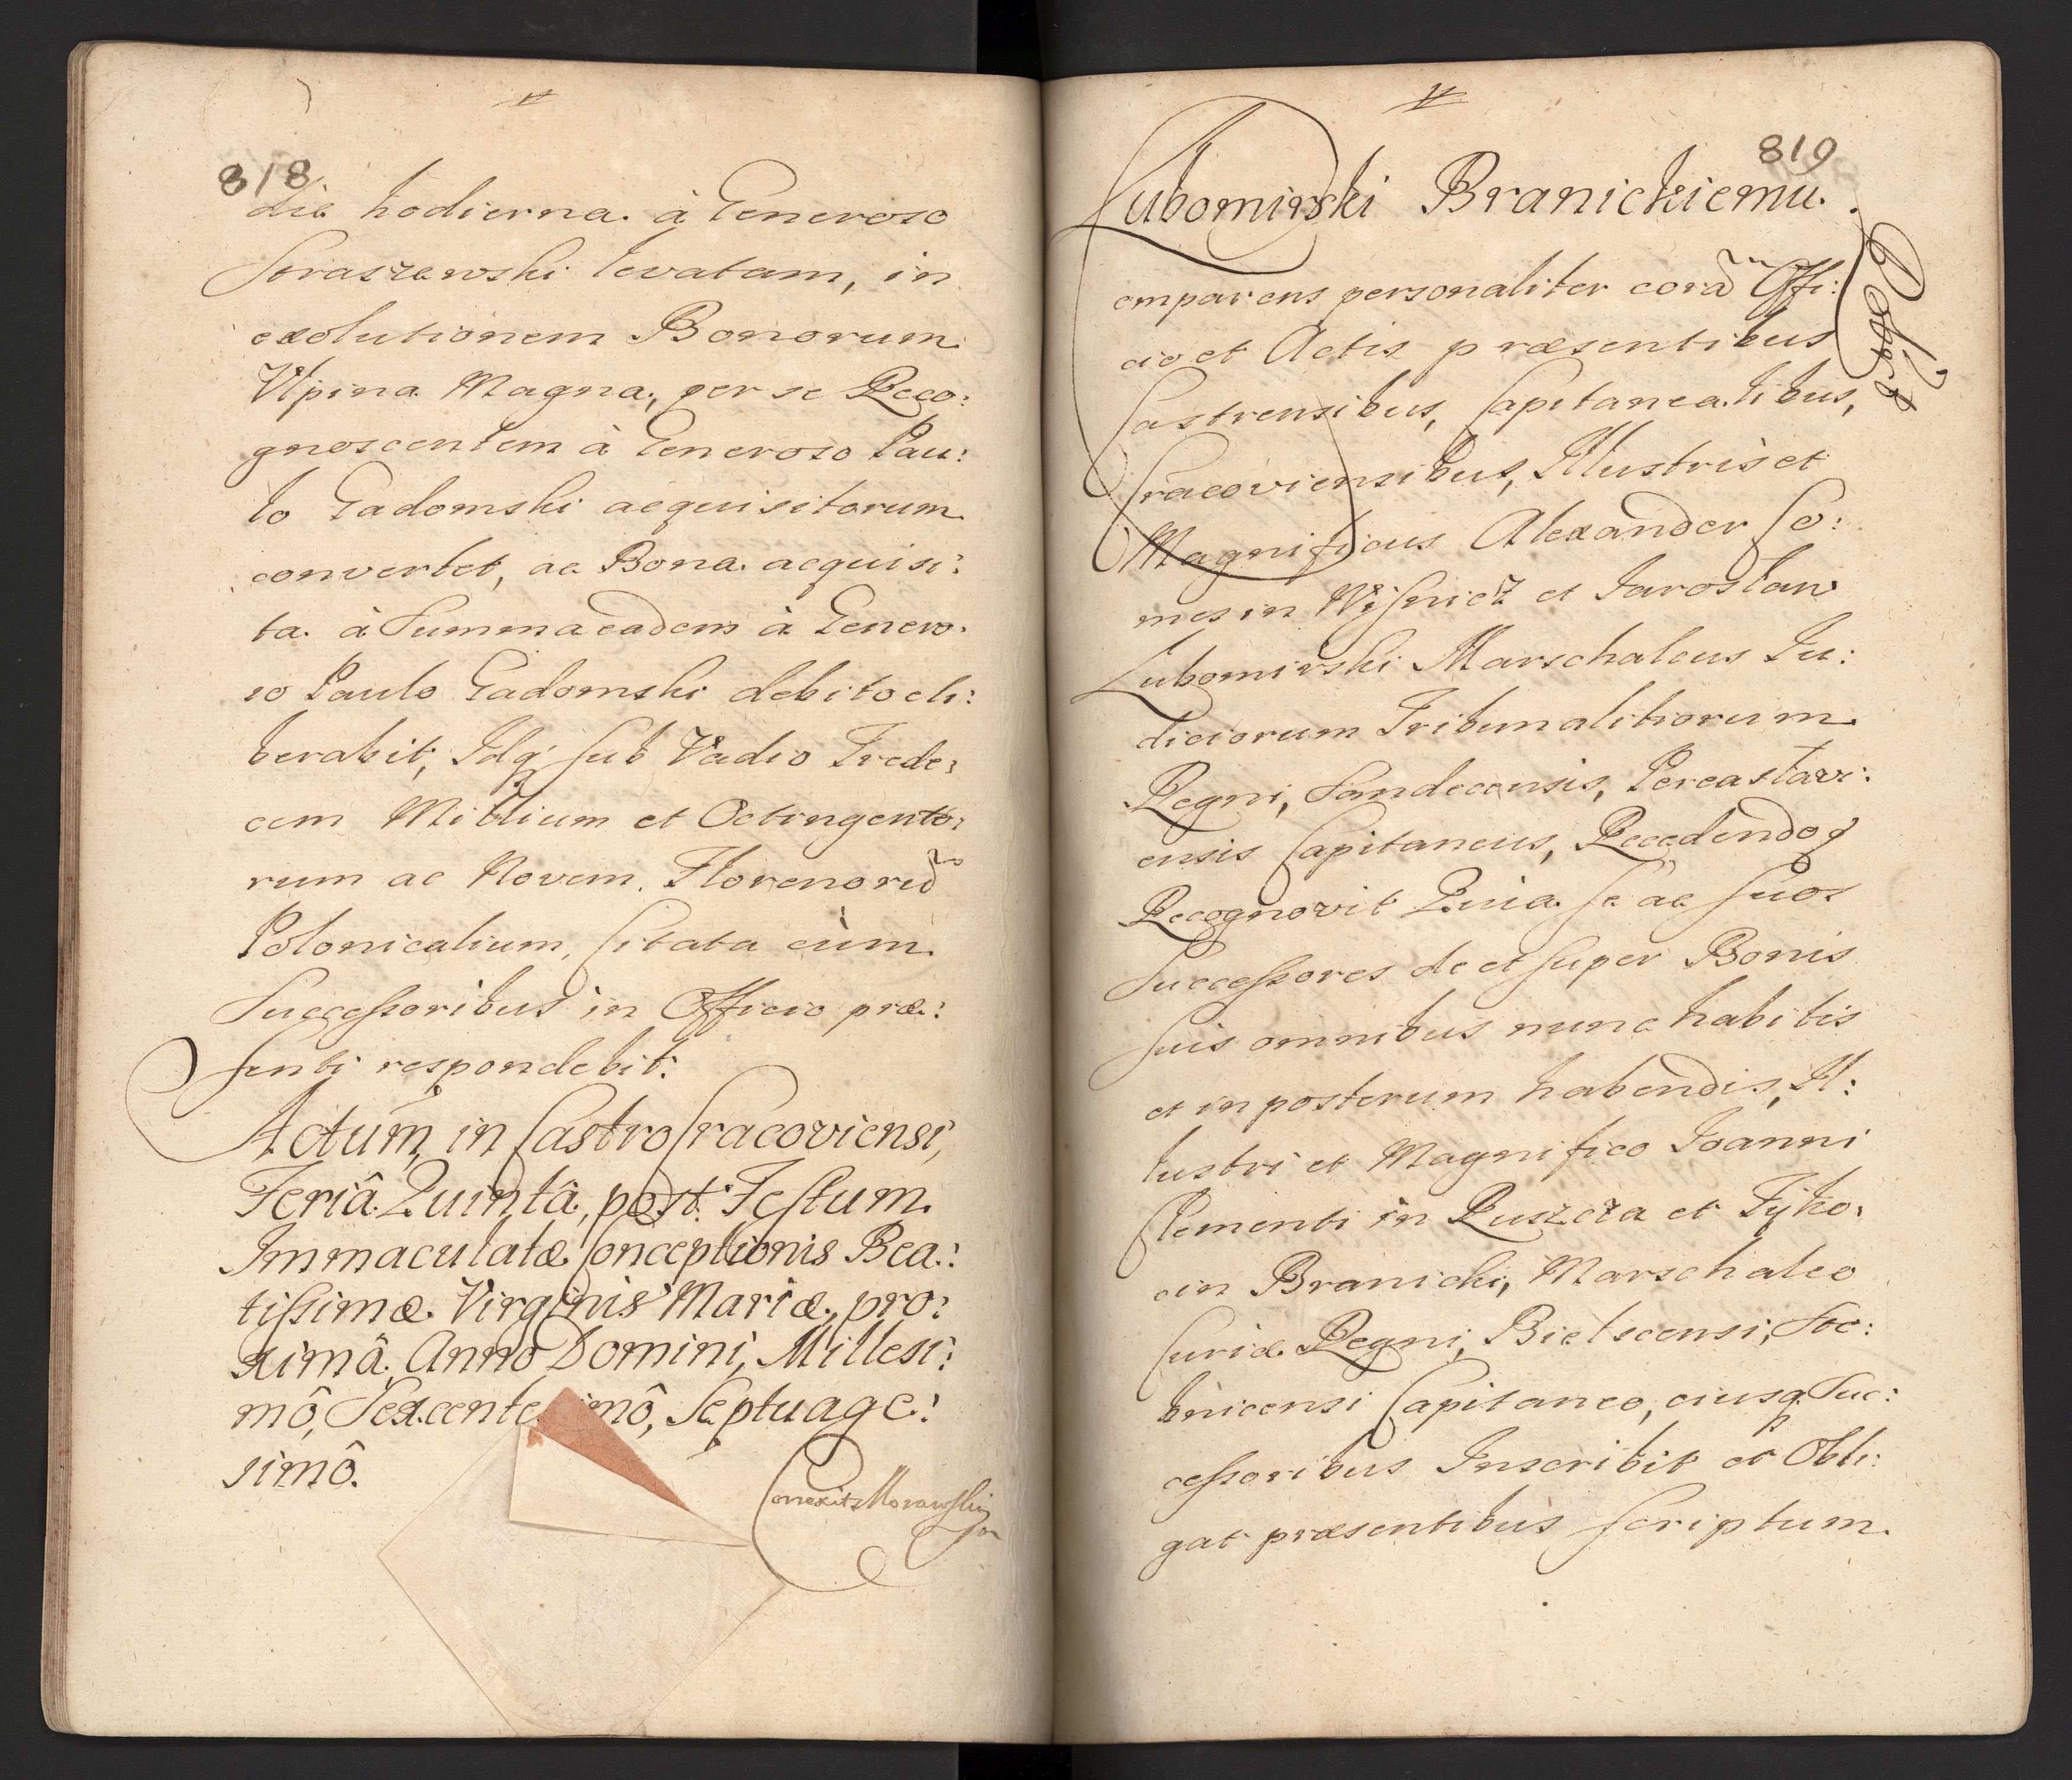 818
die hodierna à Generoso
Straszewski levatam, in
exolutionem Bonorum
Vlpina Magna, per se Reco:
gnoscentem à Generoso Pau:
lo Gadomski acquisitorum
convertet, ac Bona acquisi:
ta à Summa eadem à Genero:
so Paulo Gadomski debito eli:
berabit, Idq sub Vadio Trede:
cem Millium et Octingento:
rum ac Novem Florenorũ
Polonicalium, Citata cùm
Successoribus in Officio præ:
senti respondebit.
Actum, in Castro Cracoviensi,
Feriâ Quintâ, post Festum
Immaculatæ Conceptionis Bea:
tissimæ Virginis Mariæ, pro:
ximâ, Anno Domini, Millesi:
mô, Sexcentesimô, Septuage:
simô.
Correxit
819
Lubomirski Branickiemu.
Comparens personaliter corã Offi:
cio et Actis præsentibus
Castrensibus, Capitanealibus,
Cracoviensibus, Illustris et
Magnificus Alexander Co:
mes in Wiſnicz et Iaroslaw
Lubomirski Marschalcus Iu:
diciorum Tribunalitiorum
Regni, Sandecensis, Pereaslavi:
ensis Capitaneus, Recedendoq
Recognovit Quia se ac suos
Successores de et super Bonis
suis omnibus nunc habitis
et in posterum habendis, Il:
lustri et Magnifico Ioanni
Clementi in Ruszcza et Tÿko:
cin Branicki, Marschalco
Curiæ Regni, Bielscensi, Sto:
bnicensi Capitaneo, eiusq Suc:
cessoribus Inscribit et Obli:
gat præsentibus scriptum